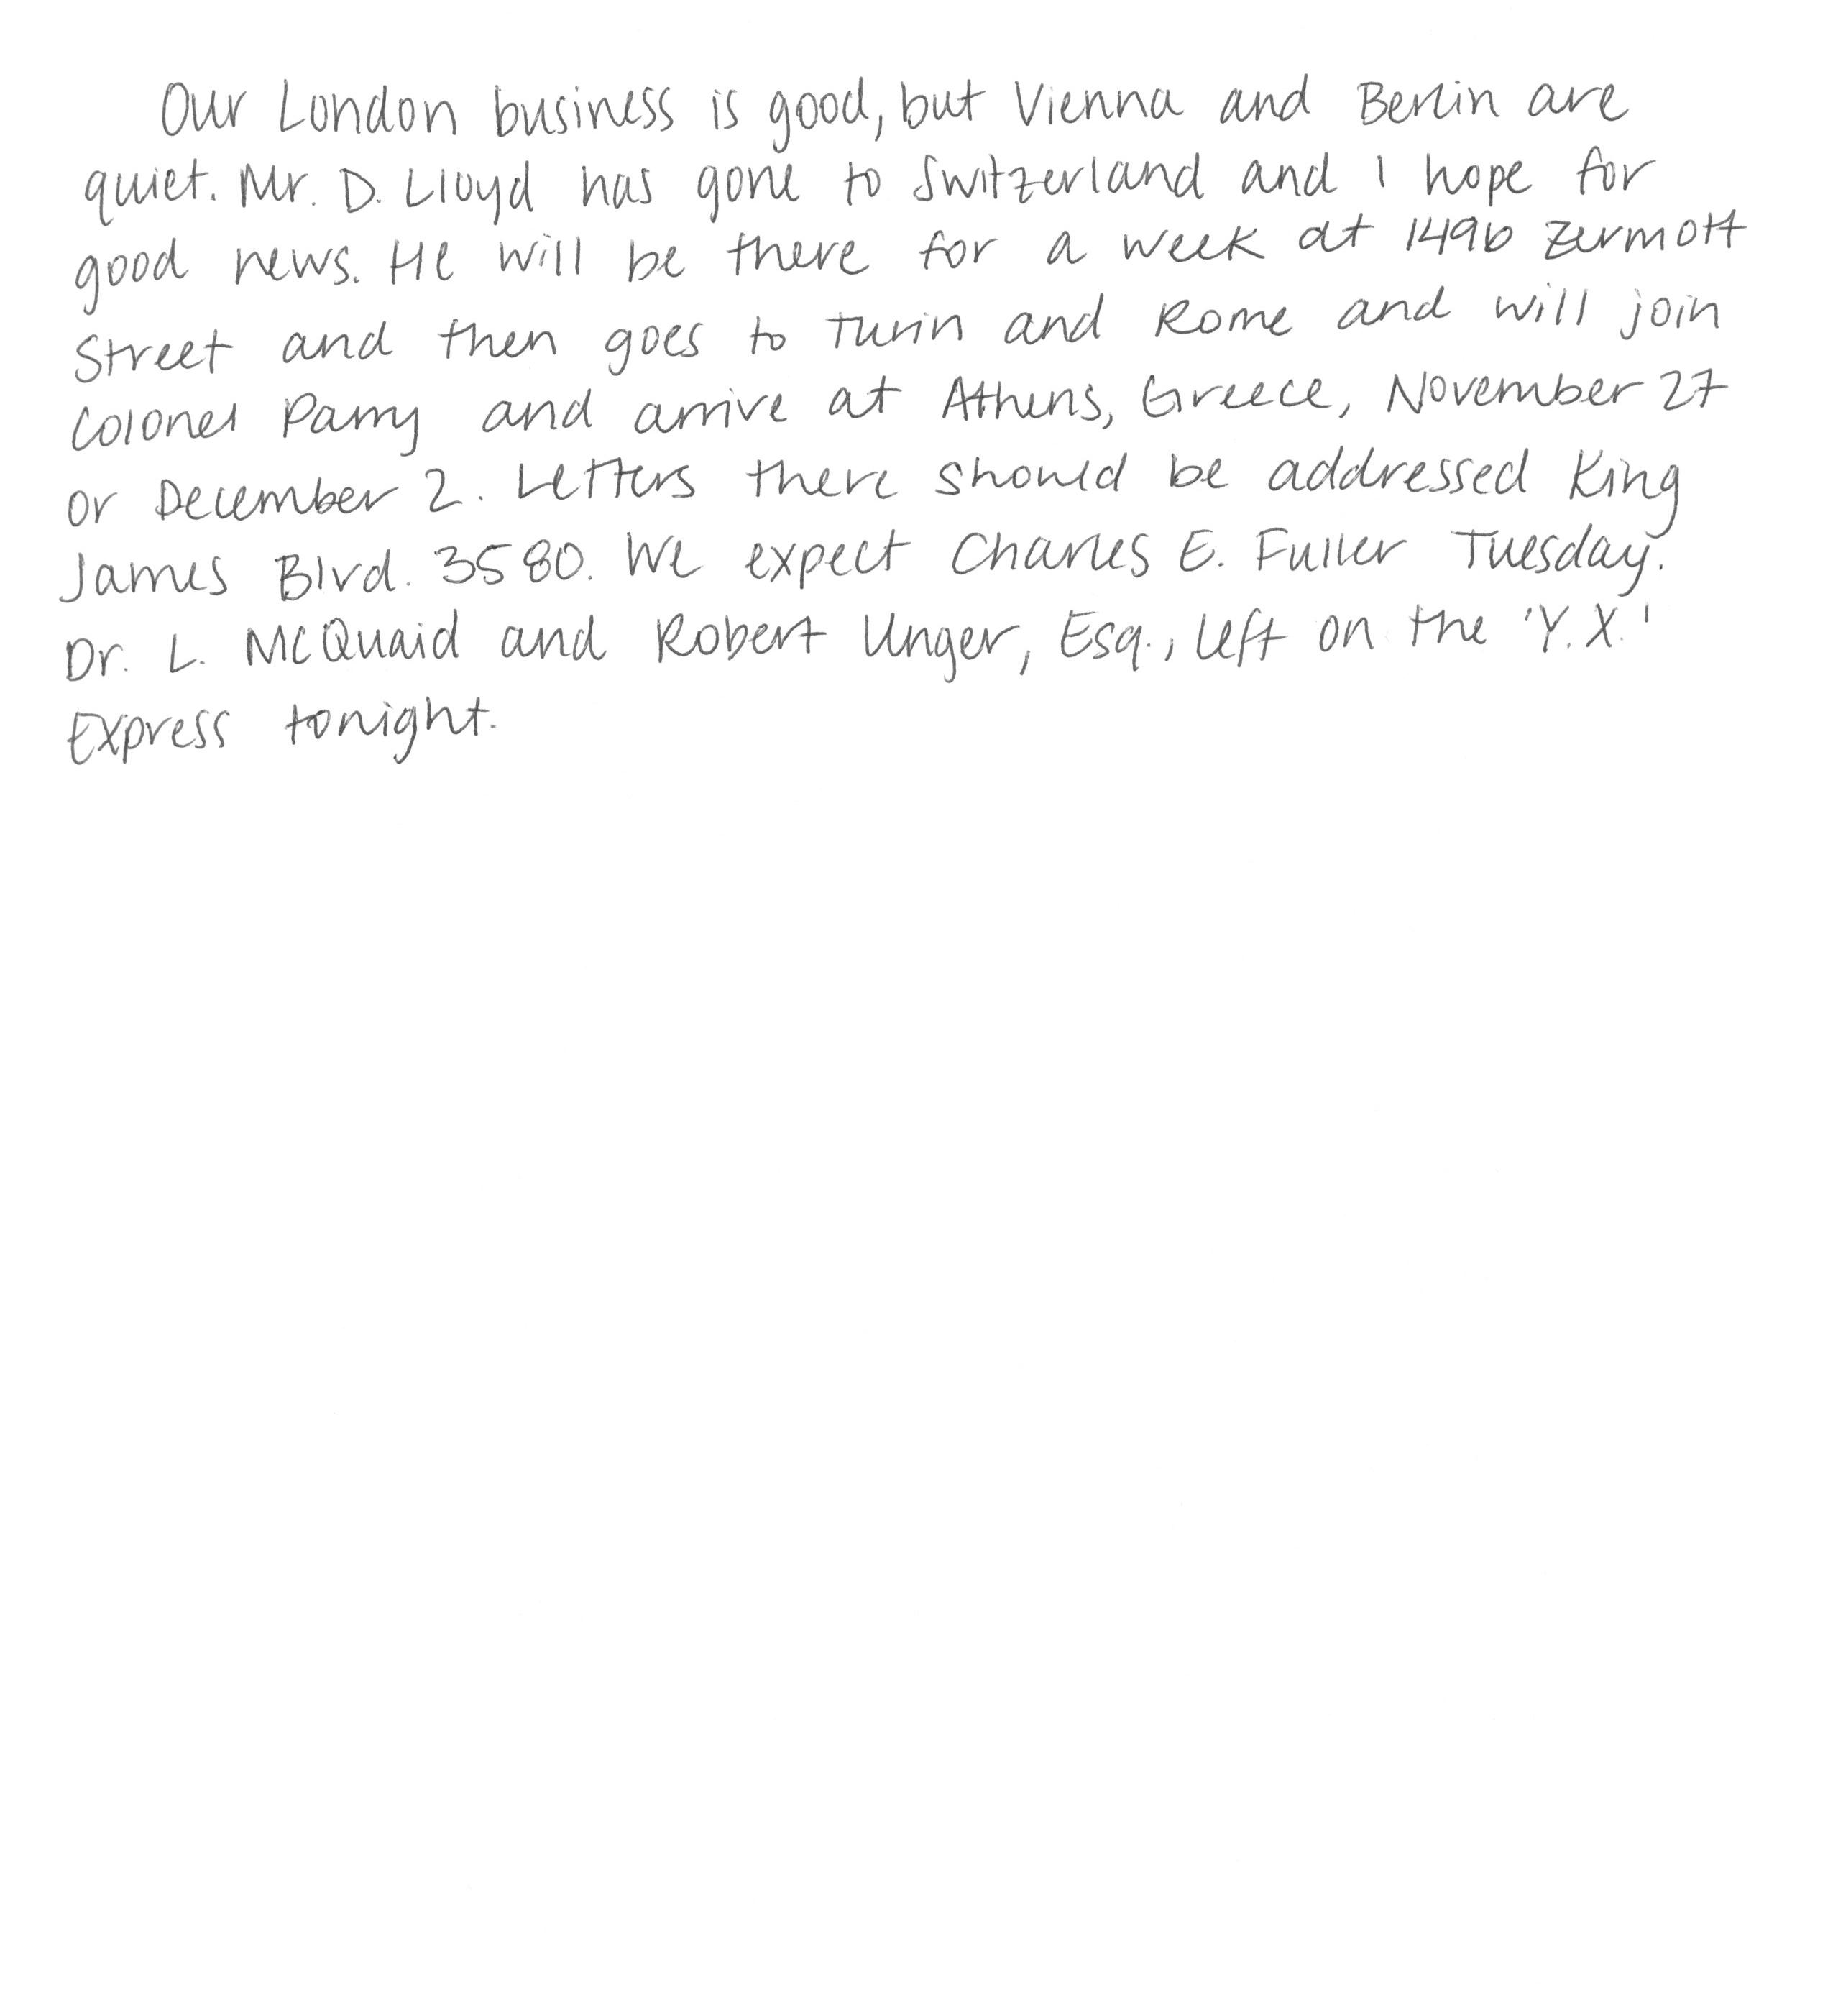 Our London business is good, but Vienna and Berlin are
quiet. Mr. D. Lloyd has gone to Switzerland and I hope for
good news. He will be there for a week at 1496 Zermott
Street and then goes to Turin and Rome and will join
Colonel Parry and arrive at Athens, Greece, November 27
or December 2. Letters there should be addressed King
James Blvd. 3580. We expect Charles E. Fuller Tuesday.
Dr. L. McQuaid and Robert Unger, Esq., left on the 'Y.X.'
Express tonight.